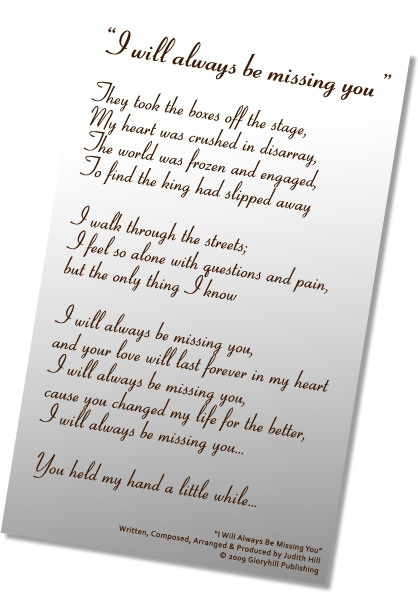 “I will always be missing you ”
They took the boxes off the stage,
My heart was crushed in disarray,
The world was frozen and engaged,
To find the king had slipped away
I walk through the streets;
I feel so alone with questions and pain,
but the only thing I know
I will always be missing you,
and your love will last forever in my heart
I will always be missing you,
cause you changed my life for the better,
I will always be missing you...
You held my hand a little while...
"I Will Always Be Missing You"
Written, Composed, Arranged & Produced by Judith Hill
© 2009 Gloryhill Publishing